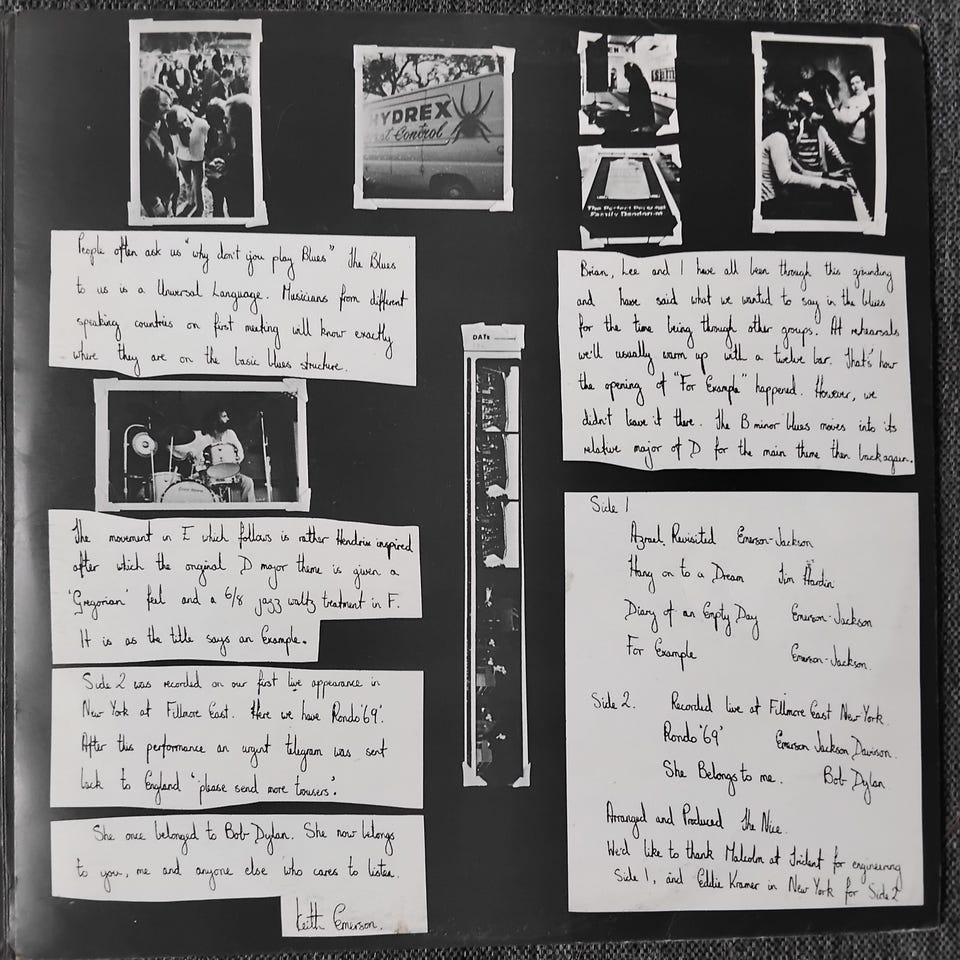 HYDREX
Pest Control
The Perfect Personal
Family Deodorant
People often ask us "why don't you play Blues" The Blues
to us is a Universal Language. Musicians from different
speaking countries on first meeting will know exactly
where they are on the basic blues structure.
Brian, Lee and I have all been through this grounding
and have said what we wanted to say in the blues
for the time being through other groups. At rehearsals
we'll usually warm up with a twelve bar. That's how
the opening of "For Example" happened. However, we
didn't leave it there. The B minor blues moves into its
relative major of D for the main theme then back again.
DATE
The movement in E which follows is rather Hendrix inspired
after which the original D major theme is given a
'Gregorian' feel and a 6/8 jazz waltz treatment in F.
It is as the title says an Example.
Side 2 was recorded on our first live appearance in
New York at Fillmore East. Here we have Rondo '69'.
After this performance an urgent telegram was sent
back to England 'please send more trousers.'
She once belonged to Bob Dylan. She now belongs
to you, me and anyone else who cares to listen.
Keith Emerson.
Side 1
Azrael Revisited Emerson-Jackson
Hang on to a Dream Jim Hardin
Diary of an Empty Day Emerson-Jackson
For Example Emerson-Jackson.
Side 2. Recorded live at Fillmore East New York.
Rondo '69' Emerson Jackson Davison.
She Belongs to me. Bob Dylan
Arranged and Produced The Nice.
We'd like to thank Malcolm at Trident for engineering
Side 1, and Eddie Kramer in New York for Side 2